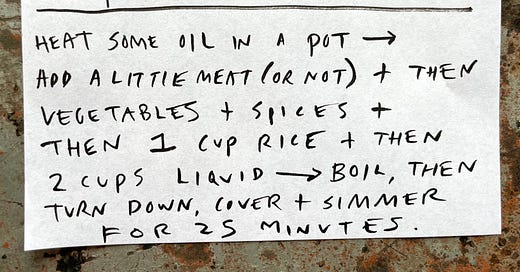 HEAT SOME OIL IN A POT →
ADD A LITTLE MEAT (OR NOT) + THEN
VEGETABLES + SPICES +
THEN 1 CUP RICE + THEN
2 CUPS LIQUID → BOIL, THEN
TURN DOWN, COVER + SIMMER
FOR 25 MINUTES.